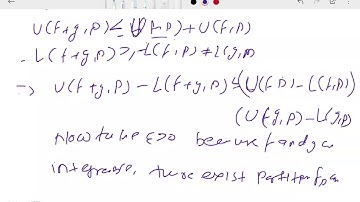 U(f+g,P) ≤ U(f,P) + U(f,P)
- L(f+g,P) ≥ -L(f,P) + L(g,P)
=> U(f+g,P) - L(f+g,P) ≤ (U(f,P) - L(f,P)
(U(g,P) - L(g,P)
Now take ε>0 because f and g a
integrable, there exist partition